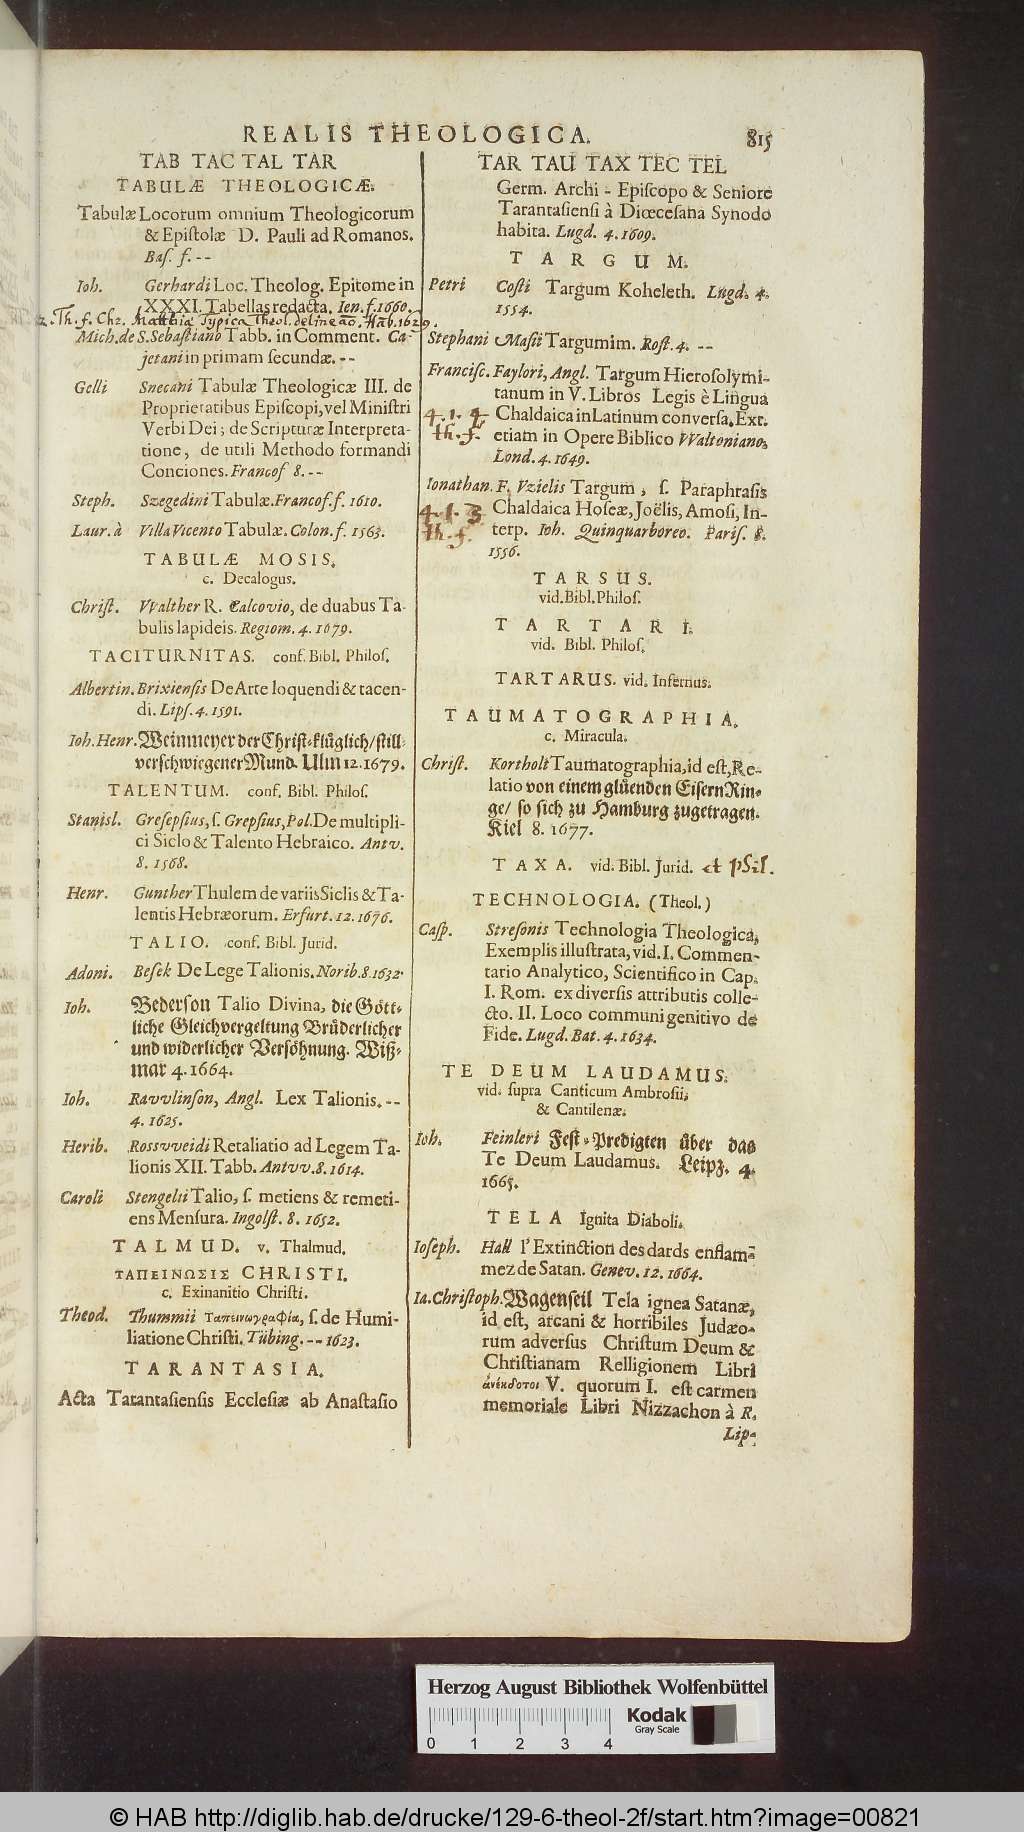 REALIS THEOLOGICA.
815
TAB TAC TAL TAR
TABULÆ THEOLOGICÆ.
Tabulæ Locorum omnium Theologicorum
& Epiſtolæ D. Pauli ad Romanos.
Baſ. f. --
Ioh. Gerhardi Loc. Theolog. Epitome in
XXXI. Tabellas redacta. Ien. f. 1660.
Th. f. Chr. Matthiæ Typica Theol. delineaõ. Hãb. 1629.
Mich. de S. Sebaſtiano Tabb. in Comment. Ca-
jetani in primam ſecundæ. --
Gelli Snecani Tabulæ Theologicæ III. de
Proprietatibus Epiſcopi, vel Miniſtri
Verbi Dei; de Scripturæ Interpreta-
tione, de utili Methodo formandi
Conciones. Francof 8. --
Steph. Szegedini Tabulæ. Francof. f. 1610.
Laur. à Villa Vicento Tabulæ. Colon. f. 1563.
TABULÆ MOSIS.
c. Decalogus.
Chriſt. VValther R. Calcovio, de duabus Ta-
bulis lapideis. Regiom. 4. 1679.
TACITURNITAS. conf. Bibl. Philoſ.
Albertin. Brixienſis De Arte loquendi & tacen-
di. Lipſ. 4. 1591.
Ioh. Henr. Weinmeyer der Chriſt-klüglich/ſtill-
verſchwiegener Mund. Ulm 12. 1679.
TALENTUM. conf. Bibl. Philoſ.
Stanisl. Greſepſius, ſ. Grepſius, Pol. De multipli-
ci Siclo & Talento Hebraico. Antv.
8. 1568.
Henr. Gunther Thulem de variis Siclis & Ta-
lentis Hebræorum. Erfurt. 12. 1676.
TALIO. conf. Bibl. Jurid.
Adoni. Beſek De Lege Talionis. Norib. 8. 1632.
Ioh. Bederſon Talio Divina, die Gött-
liche Gleichvergeltung Brüderlicher
und widerlicher Verſöhnung. Wiß-
mar 4. 1664.
Ioh. Ravvlinſon, Angl. Lex Talionis. --
4. 1625.
Herib. Rossvveidi Retaliatio ad Legem Ta-
lionis XII. Tabb. Antvv. 8. 1614.
Caroli Stengelii Talio, ſ. metiens & remeti-
ens Menſura. Ingolſt. 8. 1652.
TALMUD. v. Thalmud.
ΤΑΠΕΙΝΩΣΙΣ CHRISTI.
c. Exinanitio Chriſti.
Theod. Thummii Ταπεινωγραφία, ſ. de Humi-
liatione Chriſti. Tübing. -- 1623.
TARANTASIA.
Acta Tarantaſienſis Eccleſiæ ab Anaſtaſio
TAR TAU TAX TEC TEL
Germ. Archi-Epiſcopo & Seniore
Tarantaſienſi à Diœceſana Synodo
habita. Lugd. 4. 1609.
TARGUM.
Petri Coſti Targum Koheleth. Lugd. 4.
1554.
Stephani Maſii Targumim. Roſt. 4. --
Franciſc. Faylori, Angl. Targum Hieroſolymi-
tanum in V. Libros Legis è Lingua
4. 1. 4 Chaldaica in Latinum converſa, Ext.
th. f. etiam in Opere Biblico Waltoniano.
Lond. 4. 1649.
Ionathan. F. Vzielis Targum, ſ. Paraphraſis
4. 1. 3 Chaldaica Hoſeæ, Joëlis, Amoſi, In-
th. f. terp. Ioh. Quinquarboreo. Pariſ. 8.
1556.
TARSUS.
vid. Bibl. Philoſ.
TARTARI.
vid. Bibl. Philoſ.
TARTARUS. vid. Infernus.
TAUMATOGRAPHIA.
c. Miracula.
Chriſt. Kortholt Taumatographia, id eſt, Re-
latio von einem glüenden Eiſern Rin-
ge/ ſo ſich zu Hamburg zugetragen.
Kiel 8. 1677.
TAXA. vid. Bibl. Jurid. et phil.
TECHNOLOGIA. (Theol.)
Caſp. Streſonis Technologia Theologica,
Exemplis illuſtrata, vid. I. Commen-
tario Analytico, Scientifico in Cap.
I. Rom. ex diverſis attributis colle-
cto. II. Loco communi genitivo de
Fide. Lugd. Bat. 4. 1634.
TE DEUM LAUDAMUS.
vid. ſupra Canticum Ambroſii,
& Cantilenæ.
Ioh. Feinleri Feſt-Predigten über das
Te Deum Laudamus. Leipz. 4.
1665.
TELA Ignita Diaboli.
Ioſeph. Hall l'Extinction des dards enflam-
mez de Satan. Genev. 12. 1664.
Ia. Chriſtoph. Wagenſeil Tela ignea Satanæ,
id eſt, arcani & horribiles Judæo-
rum adverſus Chriſtum Deum &
Chriſtianam Relligionem Libri
ἀνέκδοτοι V. quorum I. eſt carmen
memoriale Libri Nizzachon à R.
Lip-
Herzog August Bibliothek Wolfenbüttel
Kodak
Gray Scale
0 1 2 3 4
© HAB http://diglib.hab.de/drucke/129-6-theol-2f/start.htm?image=00821